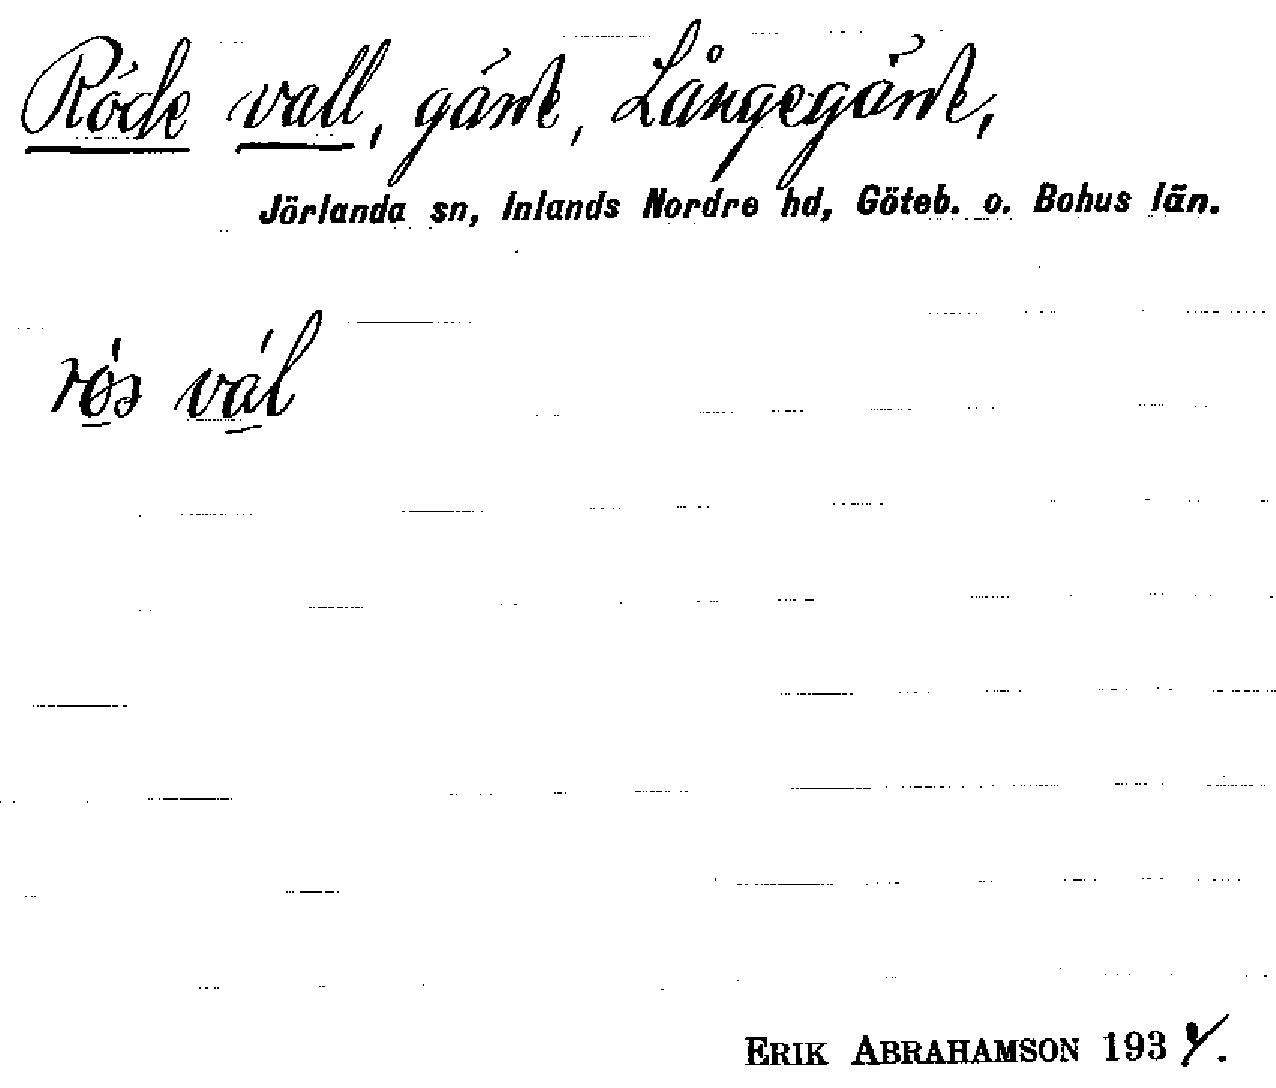 Röde vall, gärde, Långegärde,
Jörlanda sn, Inlands Nordre hd, Göteb. o. Bohus län.
vál
ERIK ABRAHAMSON 193